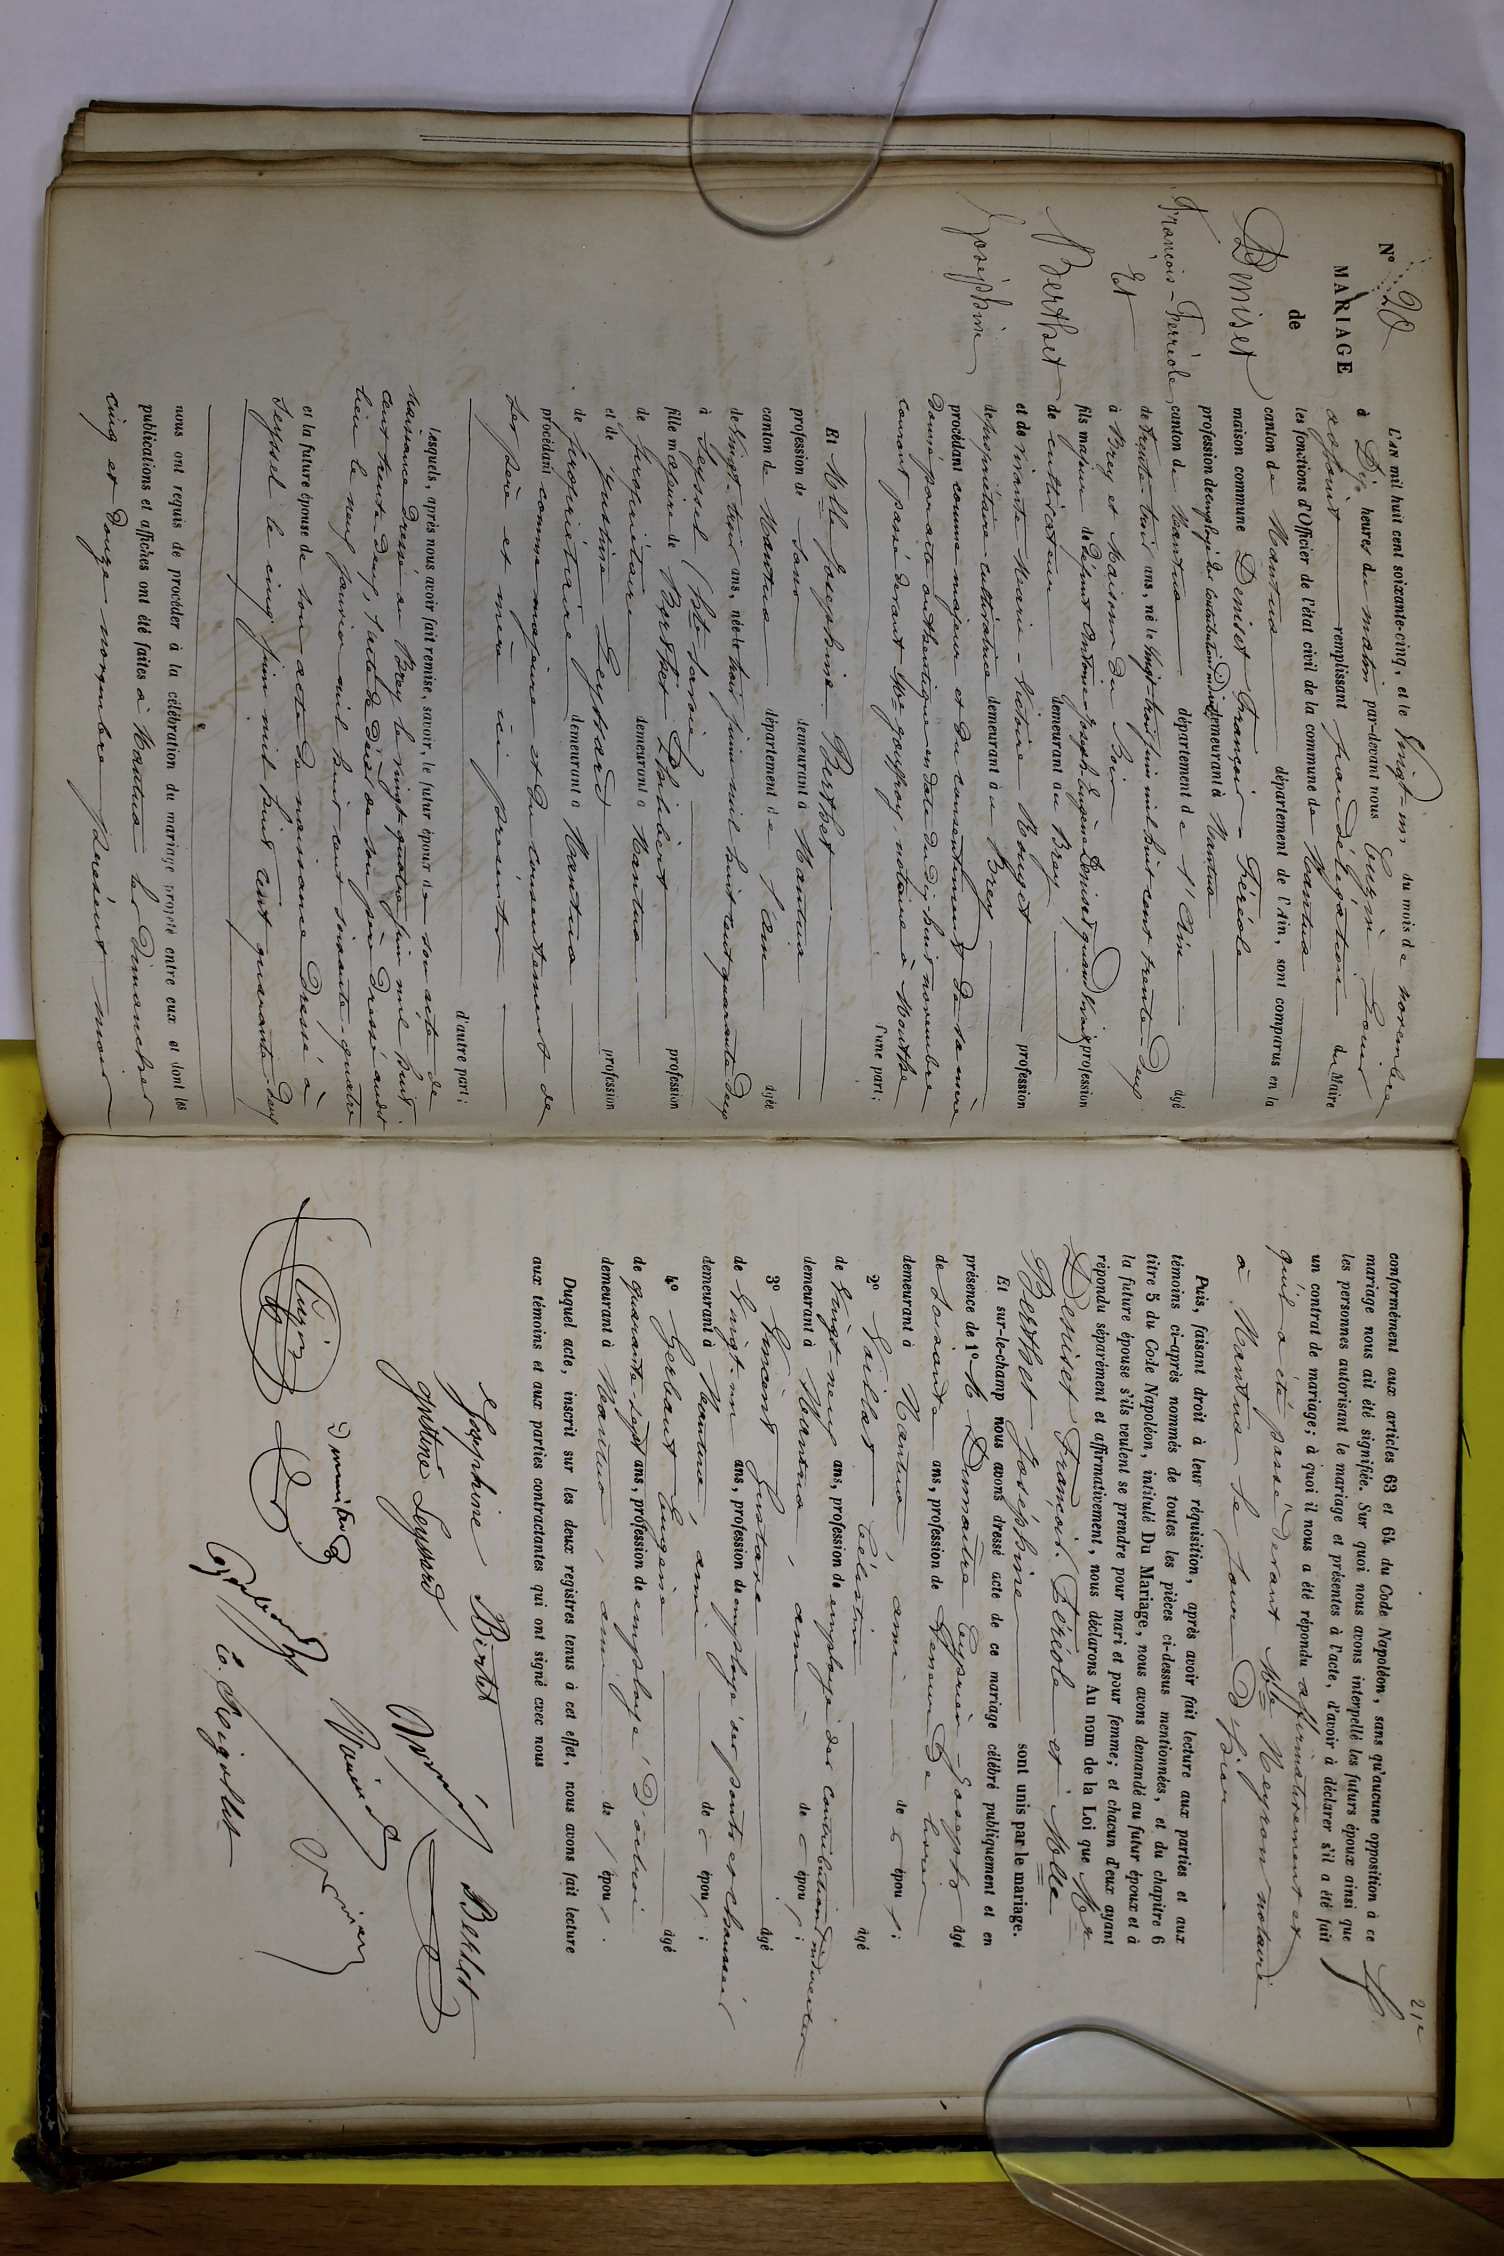 N° 20
MARIAGE
de
Deniset
François-Ferréole
Et
Berthet
Joséphine
L'an mil huit cent soixante-cinq, et le Vingt-un du mois de novembre
à Dix heures du matin par-devant nous
adjoint remplissant par délégation du Maire
les fonctions d'Officier de l'état civil de la commune de Nantua
canton de Nantua département de l'Ain, sont comparus en la
maison commune Deniset François-Féréole
profession de employé des Contributions indirectes demeurant à Nantua
canton de Nantua département de l'Ain âgé
de trente-trois ans, né le Vingt-trois juin mil huit cent trente-deux
à Brey et Maison du Bois
fils majeur de défunt Antoine-Joseph-Eugène Deniset quand vivait profession
de cultivateur demeurant au Brey
et de vivante Marie-Victoire Rouget profession
de propriétaire cultivatrice demeurant à Brey
procédant comme majeur et du consentement de sa mère
donné par acte authentique en date du dix-huit novembre
courant passé devant Me notaire à Mouthe
d'une part;
Et Mlle Joséphine Berthet
profession de sans demeurant à Nantua
canton de Nantua département de l'Ain âgée
de vingt-trois ans, née le trois juin mil huit cent quarante deux
à Seyssel (hte Savoie)
fille majeure de Berthet Philibert profession
de propriétaire demeurant à Nantua
et de Justine Leyssard profession
de propriétaire demeurant à Nantua
procédant comme majeure et du consentement de
ses père et mère ici présents
d'autre part;
Lesquels, après nous avoir fait remise, savoir, le futur époux de son acte de
naissance dressé au Brey le vingt-quatre juin mil huit
cent trente deux, l'acte de décès de son père dressé audit
lieu le neuf janvier mil huit cent soixante-quatre
et la future épouse de son acte de naissance dressé à
Seyssel le cinq juin mil huit cent quarante-deux
nous ont requis de procéder à la célébration du mariage projeté entre eux et dont les
publications et affiches ont été faites à Nantua les dimanches
cinq et douze novembre présent mois
21e
conformément aux articles 63 et 64 du Code Napoléon, sans qu'aucune opposition à ce
mariage nous ait été signifiée. Sur quoi nous avons interpellé les futurs époux ainsi que
les personnes autorisant le mariage et présentes à l'acte, d'avoir à déclarer s'il a été fait
un contrat de mariage; à quoi il nous a été répondu affirmativement et
qu'il a été passé devant Me Neyron notaire
à Nantua le jour d'hier
Puis, faisant droit à leur réquisition, après avoir fait lecture aux parties et aux
témoins ci-après nommés de toutes les pièces ci-dessus mentionnées, et du chapitre 6
titre 5 du Code Napoléon, intitulé Du Mariage, nous avons demandé au futur époux et à
la future épouse s'ils veulent se prendre pour mari et pour femme; et chacun d'eux ayant
répondu séparément et affirmativement, nous déclarons Au nom de la Loi que Mr
Deniset François-Féréole et Mlle
Berthet Joséphine
sont unis par le mariage.
Et sur-le-champ nous avons dressé acte de ce mariage célébré publiquement et en
présence de 1° M. Dumaître Cyprien-Joseph âgé
de soixante ans, profession de teneur de livres
demeurant à Nantua, ami de l' époux;
2° Vaillat Célestin âgé
de Vingt-neuf ans, profession de employé des contributions indirectes
demeurant à Nantua, ami de l' époux;
3° Gustave âgé
de Vingt-un ans, profession de employé des ponts et chaussées
demeurant à Nantua, ami de l' époux;
4° Eugène âgé
de quarante-sept ans, profession de employé d'octroi
demeurant à Nantua, ami de l' époux.
Duquel acte, inscrit sur les deux registres tenus à cet effet, nous avons fait lecture
aux témoins et aux parties contractantes qui ont signé avec nous
Joséphine Bertet
Berthet
Justine Leyssard